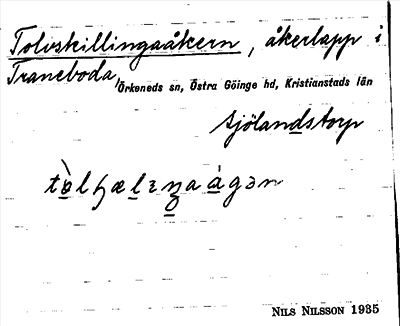 Tolvskillingaåkern, åkerlapp i
Traneboda,
Örkeneds sn, Östra Göinge hd, Kristianstads län
Sjölandstorp
NILS NILSSON 1935